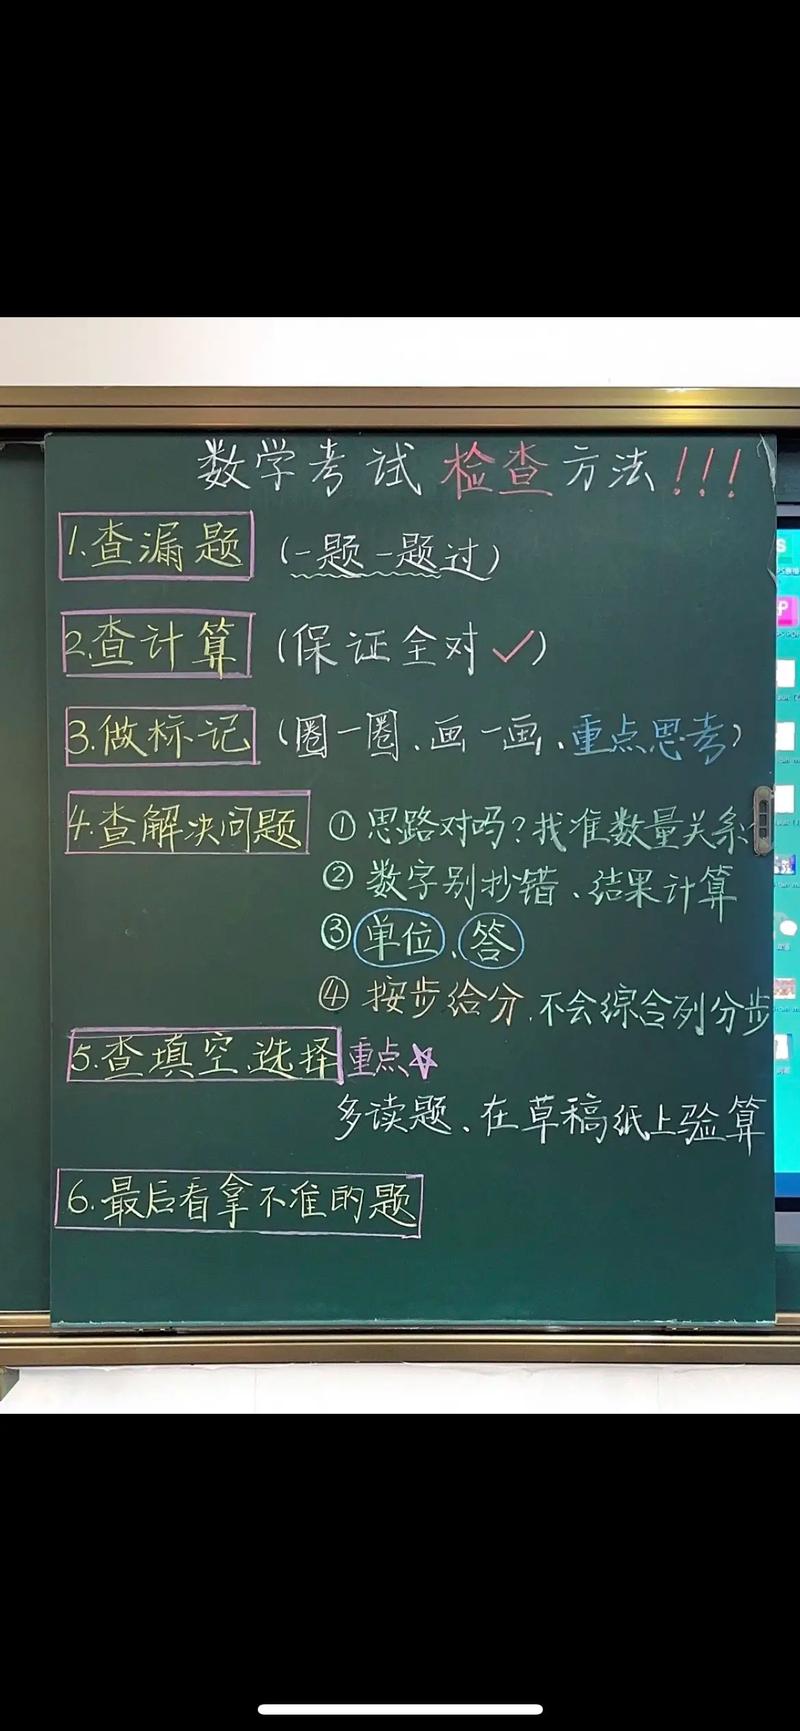 数学考试检查方法!!!
1.查漏题 (一题一题过)
2.查计算 (保证全对✓)
3.做标记 (圈一圈、画一画、重点思考)
4.查解决问题 ①思路对吗?找准数量关系
②数字别抄错、结果计算
③单位、答
④按步给分,不会综合列分步
5.查填空、选择 重点☆
多读题、在草稿纸上验算
6.最后看拿不准的题